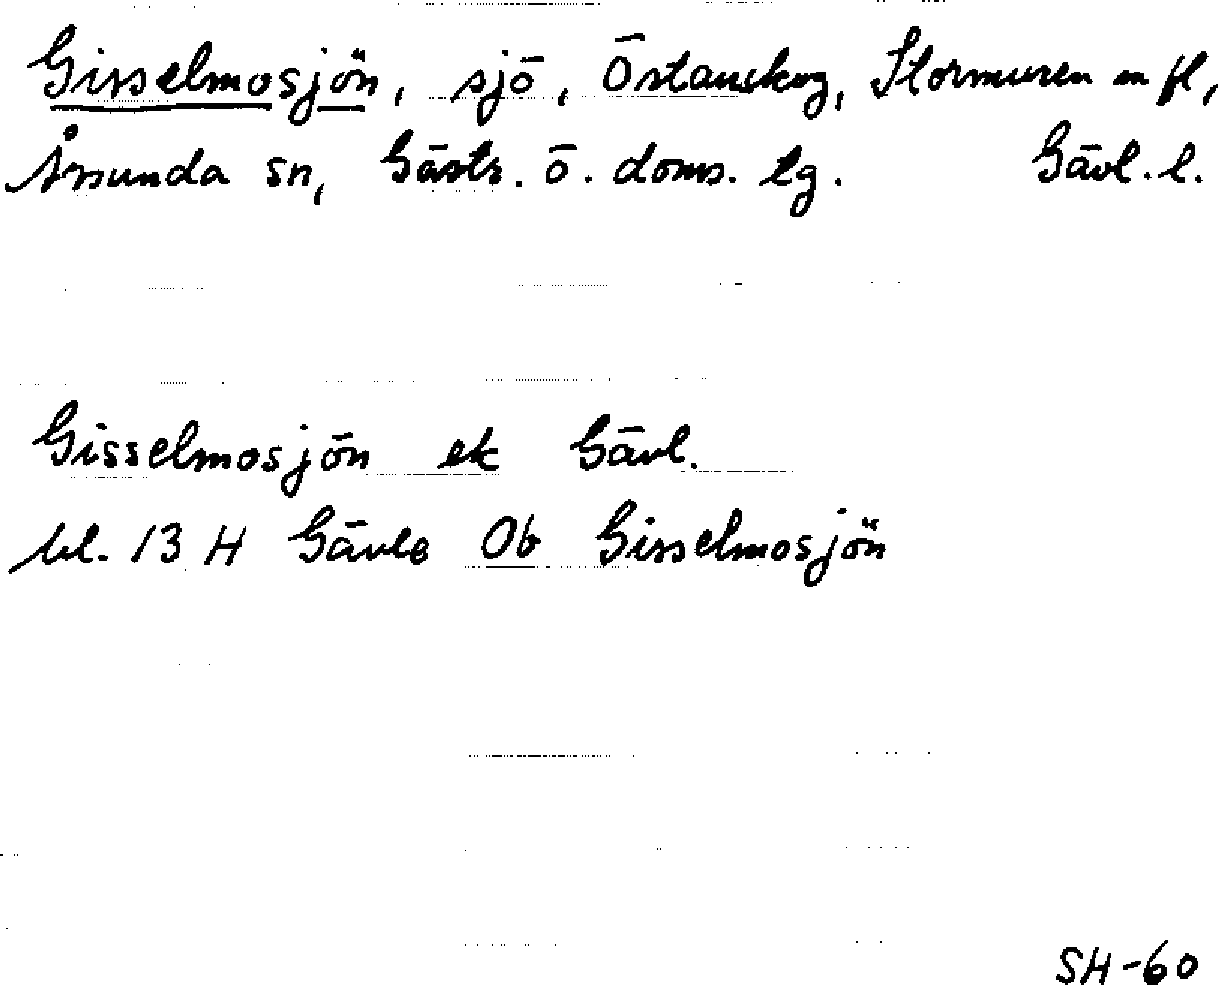 Gisselmosjön, sjö, Östanskog, Stormuren m fl,
Årsunda sn, Gästr. ö. doms. lg. Gävl. l.
Gisselmosjön ek Gävl.
bl. 13 H Gävle 0b Gisselmosjön
SH-60